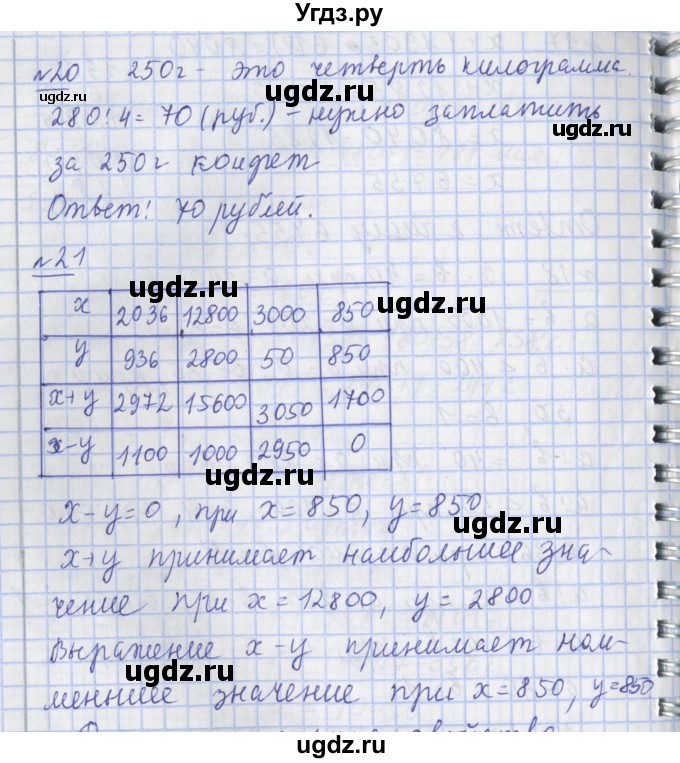 Угдз.ру
№20 250г - это четверть килограмма.
ugdz.ru
280:4= 70 (руб.) - нужно заплатить
ugdz.ru
за 250г конфет
Ответ: 70 рублей.
ugdz.ru
№21
ugdz.ru ugdz.ru
x 2036 12800 3000 850
y 936 2800 50 850
x+y 2972 15600 3050 1700
x-y 1100 1000 2950 0
ugdz.ru
x-y=0, при x=850, y=850
ugdz.ru
x+y принимает наибольшее зна-
чение при x=12800, y=2800
Выражение x-y принимает наи-
ugdz.ru
меньшее значение при x=850, y=850
ugdz.ru